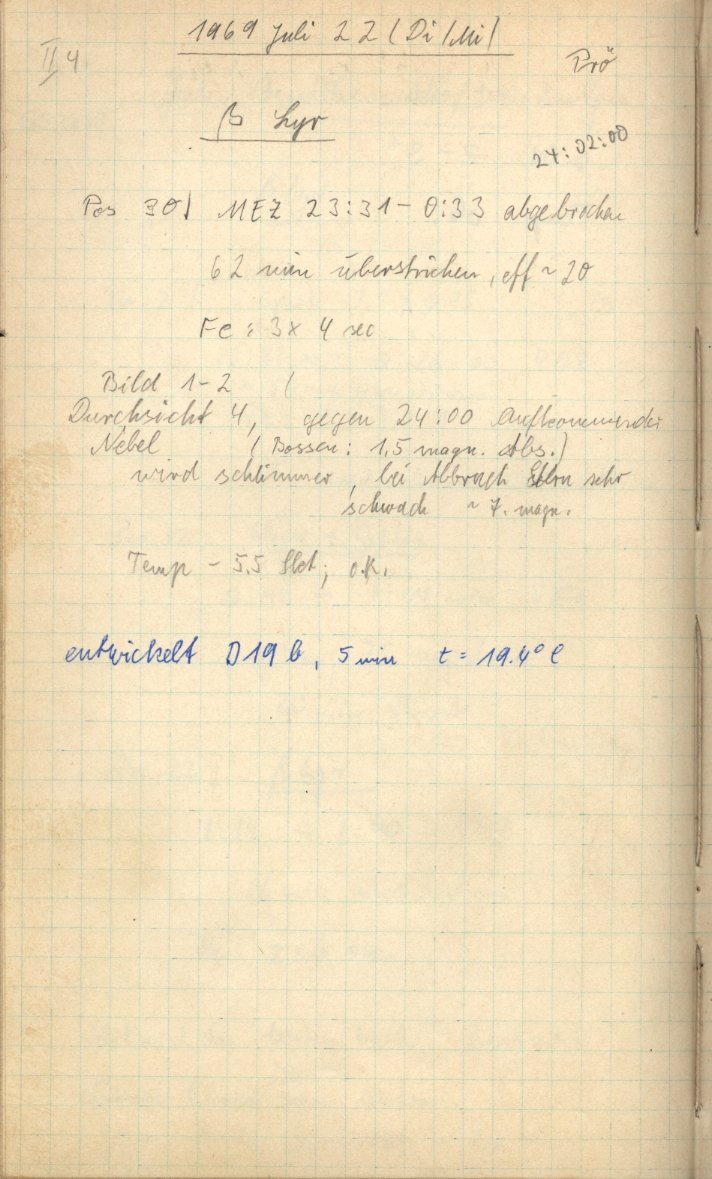 1969 Juli 22 (Di/Mi)
II 4
Prö
β Lyr
24:02:00
Pos 301 MEZ 23:31 - 0:33 abgebrochen
62 min überstrichen, eff ~ 20
Fe: 3x 4 sec
Bild 1-2 (
Durchsicht 4, gegen 24:00 aufkommender
Nebel (Bossen: 1,5 magn. Abs.)
wird schlimmer, bei Abbruch sehr
schwach ~ 7. magn.
Temp - 5.5 ; o.k.
entwickelt D19b, 5 min t = 19.4° C